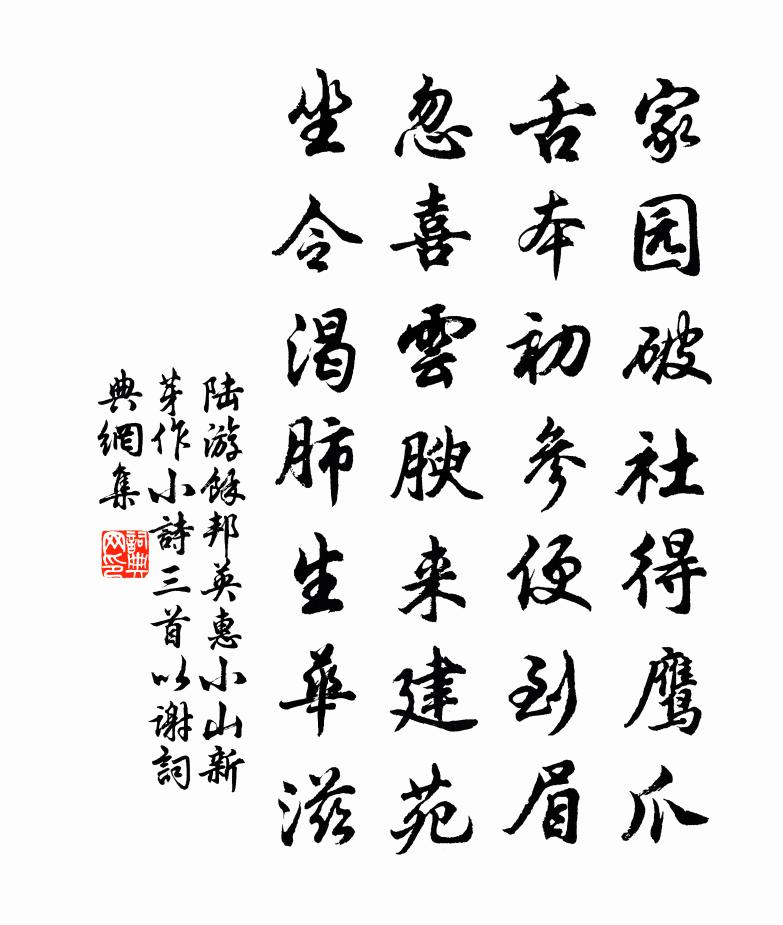 家园破社得鹰爪
舌本初参便到眉
忽喜雲腴来建苑
坐令渴肺生華滋
陆游餘邦英惠小山新
芽作小詩三首以谢詞
典網集
詞典
网印